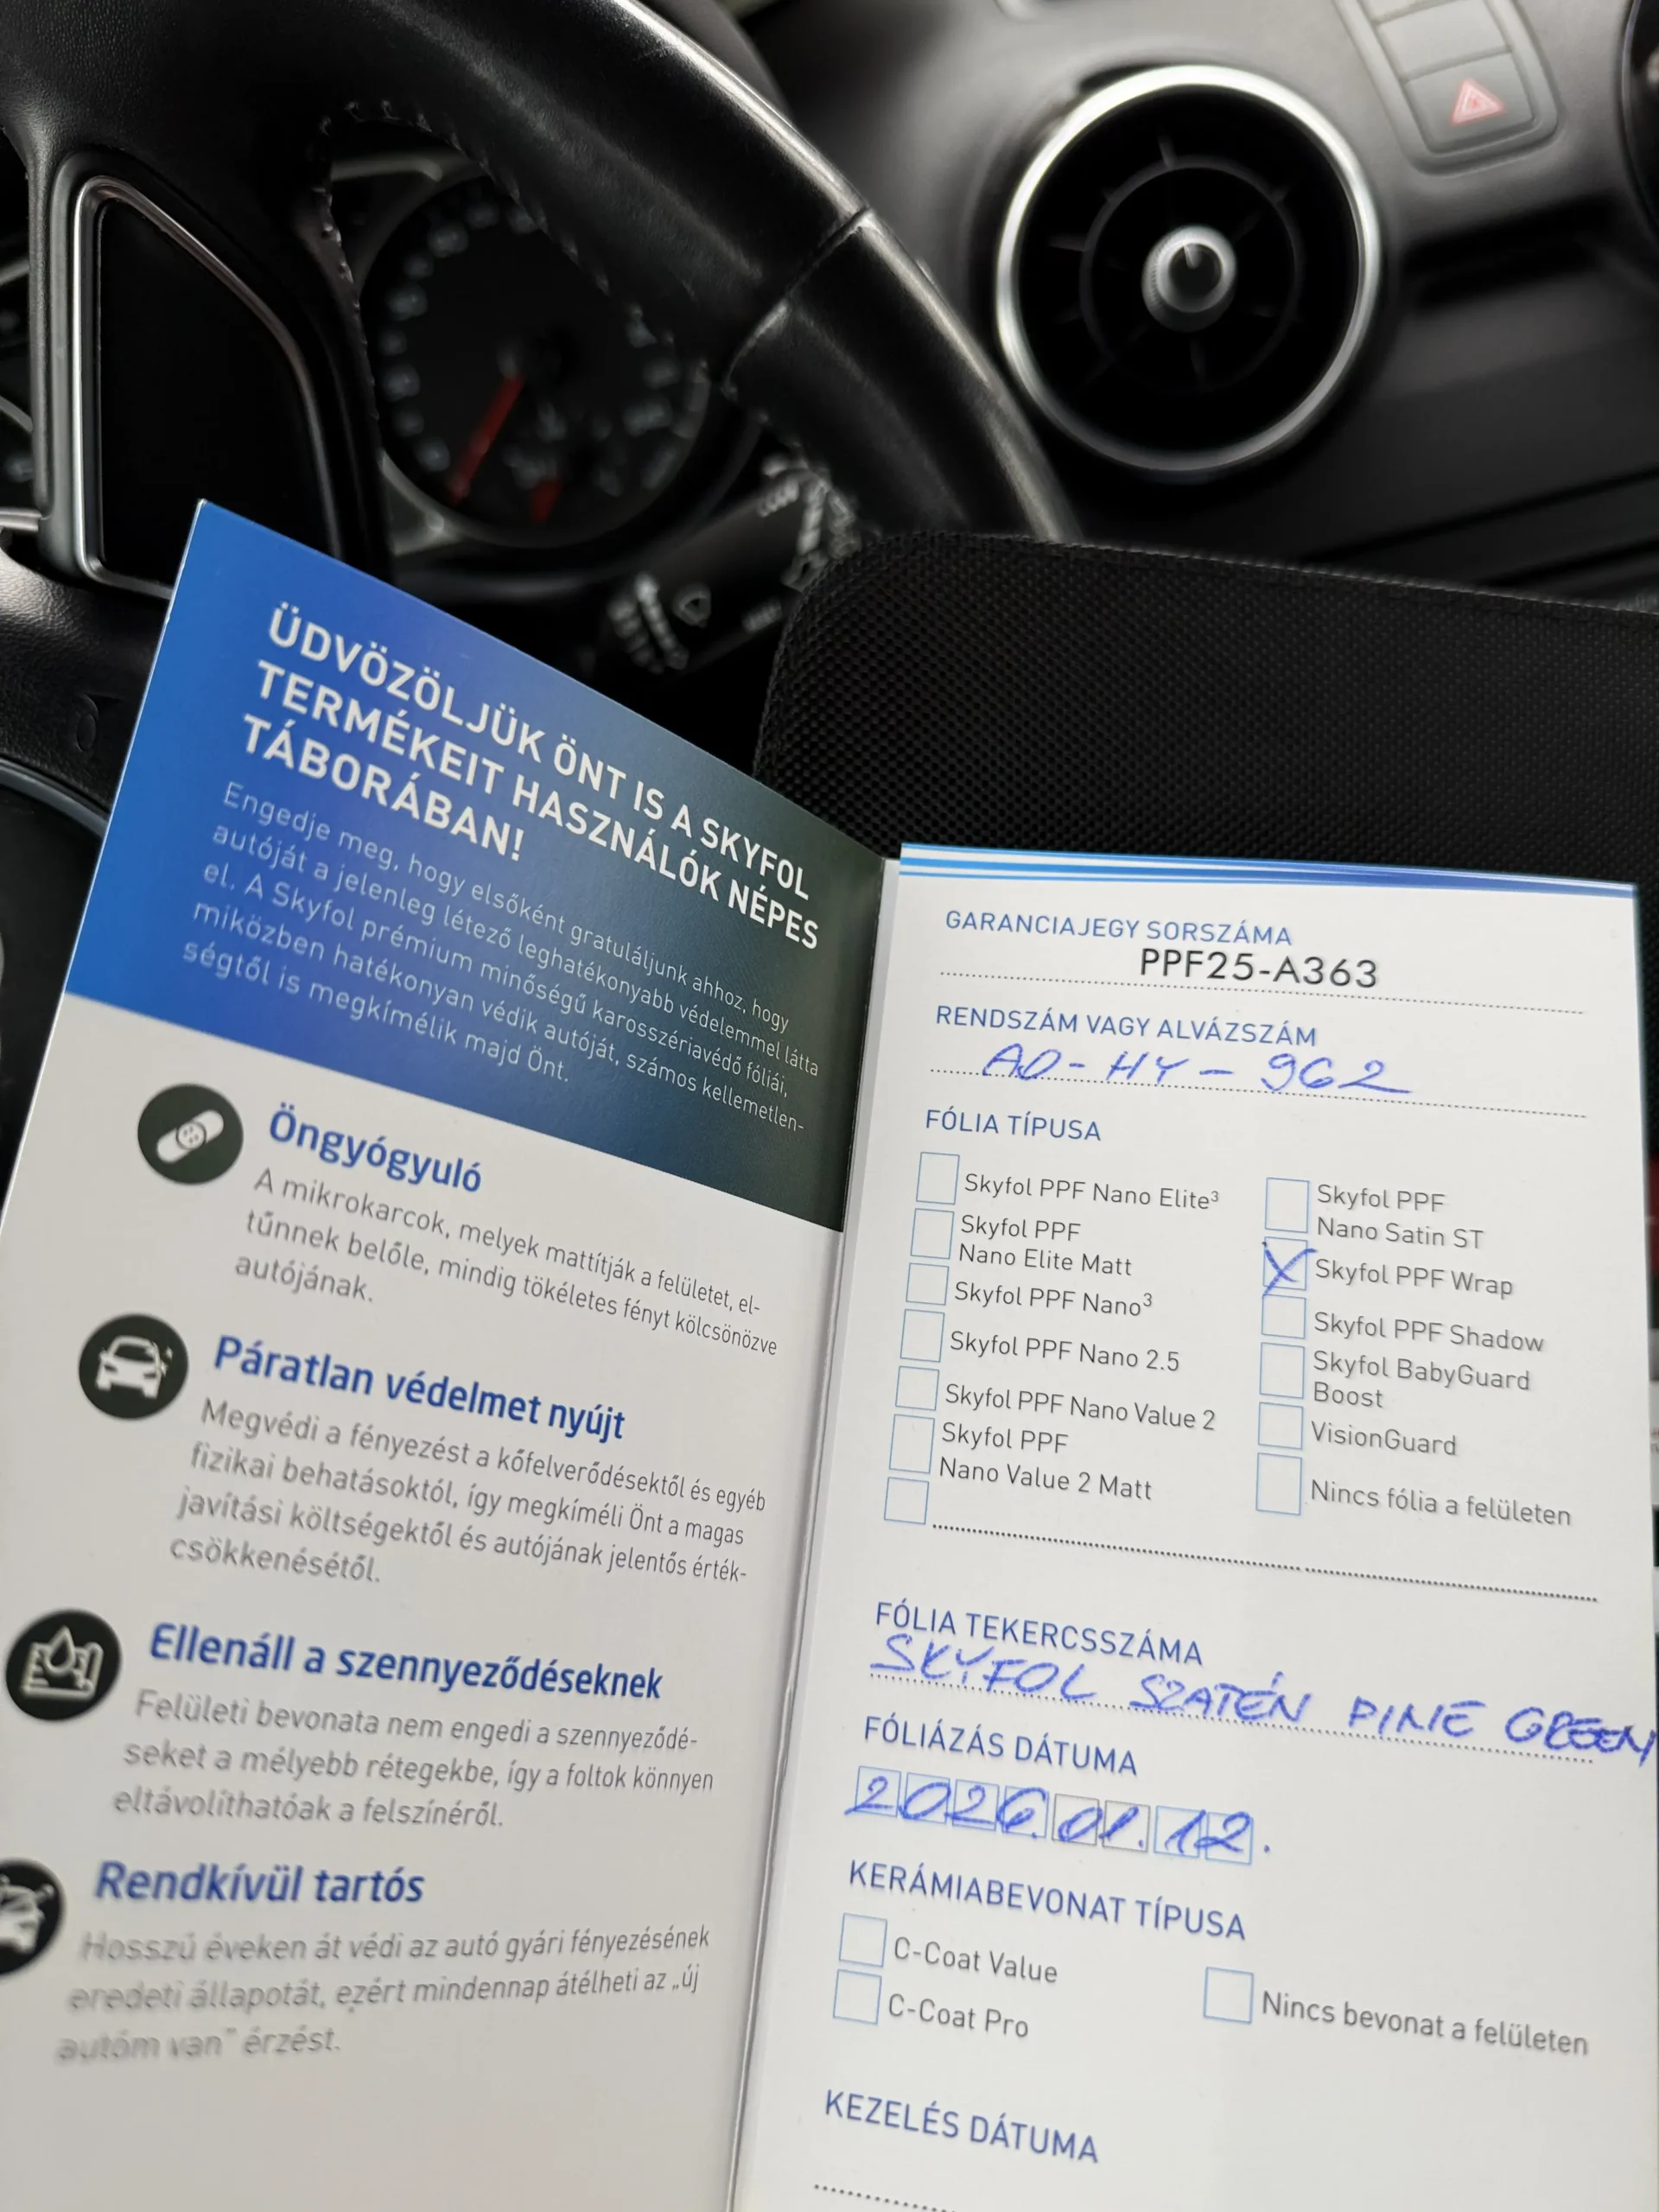 ÜDVÖZÖLJÜK ÖNT IS A SKYFOL
TERMÉKEIT HASZNÁLÓK NÉPES
TÁBORÁBAN!
Engedje meg, hogy elsőként gratuláljunk ahhoz, hogy
autóját a jelenleg létező leghatékonyabb védelemmel látta
el. A Skyfol prémium minőségű karosszériavédő fóliái,
miközben hatékonyan védik autóját, számos kellemetlen-
ségtől is megkímélik majd Önt.
Öngyógyuló
A mikrokarcok, melyek mattítják a felületet, el-
tűnnek belőle, mindig tökéletes fényt kölcsönözve
autójának.
Páratlan védelmet nyújt
Megvédi a fényezést a kőfelverődésektől és egyéb
fizikai behatásoktól, így megkíméli Önt a magas
javítási költségektől és autójának jelentős érték-
csökkenésétől.
Ellenáll a szennyeződéseknek
Felületi bevonata nem engedi a szennyeződé-
seket a mélyebb rétegekbe, így a foltok könnyen
eltávolíthatóak a felszínéről.
Rendkívül tartós
Hosszú éveken át védi az autó gyári fényezésének
eredeti állapotát, ezért mindennap átélheti az „új
autóm van” érzést.
GARANCIAJEGY SORSZÁMA
PPF25-A363
RENDSZÁM VAGY ALVÁZSZÁM
AO-HY-962
FÓLIA TÍPUSA
Skyfol PPF Nano Elite³
Skyfol PPF
Nano Elite Matt
Skyfol PPF Nano³
Skyfol PPF Nano 2.5
Skyfol PPF Nano Value 2
Skyfol PPF
Nano Value 2 Matt
Skyfol PPF
Nano Satin ST
X Skyfol PPF Wrap
Skyfol PPF Shadow
Skyfol BabyGuard
Boost
VisionGuard
Nincs fólia a felületen
FÓLIA TEKERCSSZÁMA
SKYFOL SZATÉN PINE GREEN
FÓLIÁZÁS DÁTUMA
2026.01.12.
KERÁMIABEVONAT TÍPUSA
C-Coat Value
C-Coat Pro
Nincs bevonat a felületen
KEZELÉS DÁTUMA